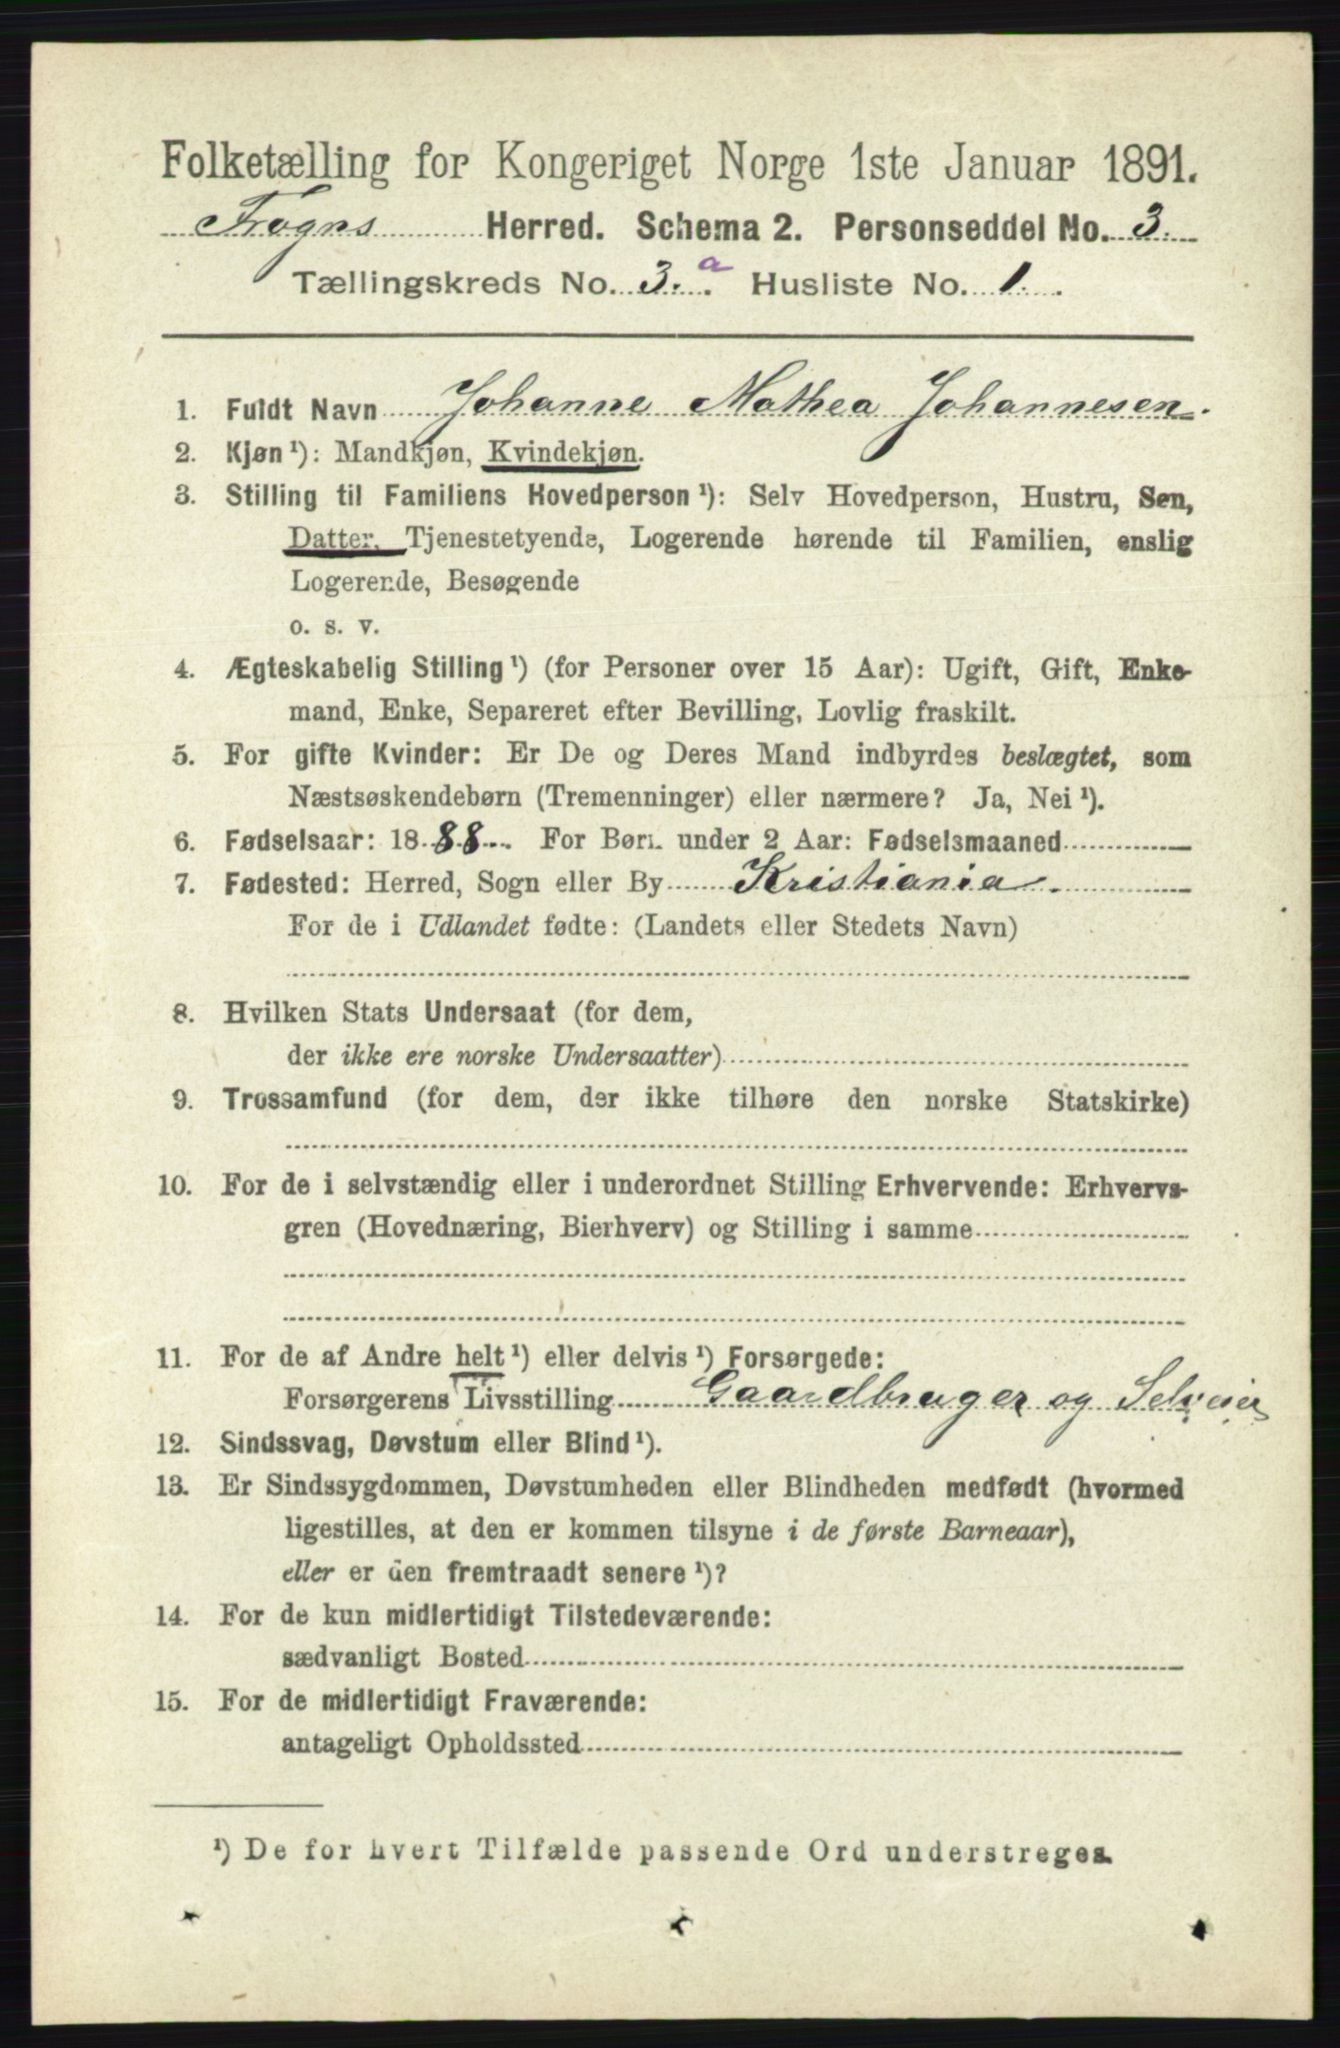 Folketælling for Kongeriget Norge 1ste Januar 1891.
Frogns Herred. Schema 2. Personseddel No. 3.
Tællingskreds No. 3. a Husliste No. 1.
1. Fuldt Navn Johanne Mathea Johannesen.
2. Kjøn ¹): Mandkjøn, Kvindekjøn.
3. Stilling til Familiens Hovedperson ¹): Selv Hovedperson, Hustru, Søn,
Datter, Tjenestetyende, Logerende hørende til Familien, enslig
Logerende, Besøgende
o. s. v.
4. Ægteskabelig Stilling ¹) (for Personer over 15 Aar): Ugift, Gift, Enke-
mand, Enke, Separeret efter Bevilling, Lovlig fraskilt.
5. For gifte Kvinder: Er De og Deres Mand indbyrdes beslægtet, som
Næstsøskendebørn (Tremenninger) eller nærmere? Ja, Nei ¹).
6. Fødselsaar: 1888. For Børn under 2 Aar: Fødselsmaaned
7. Fødested: Herred, Sogn eller By Kristiania.
For de i Udlandet fødte: (Landets eller Stedets Navn)
8. Hvilken Stats Undersaat (for dem,
der ikke ere norske Undersaatter)
9. Trossamfund (for dem, der ikke tilhøre den norske Statskirke)
10. For de i selvstændig eller i underordnet Stilling Erhvervende: Erhvervs-
gren (Hovednæring, Bierhverv) og Stilling i samme
11. For de af Andre helt ¹) eller delvis ¹) Forsørgede:
Forsørgerens Livsstilling Gaardbruger og Selveier
12. Sindssvag, Døvstum eller Blind ¹).
13. Er Sindssygdommen, Døvstumheden eller Blindheden medfødt (hvormed
ligestilles, at den er kommen tilsyne i de første Barneaar),
eller er den fremtraadt senere ¹)?
14. For de kun midlertidigt Tilstedeværende:
sædvanligt Bosted
15. For de midlertidigt Fraværende:
antageligt Opholdssted
¹) De for hvert Tilfælde passende Ord understreges.